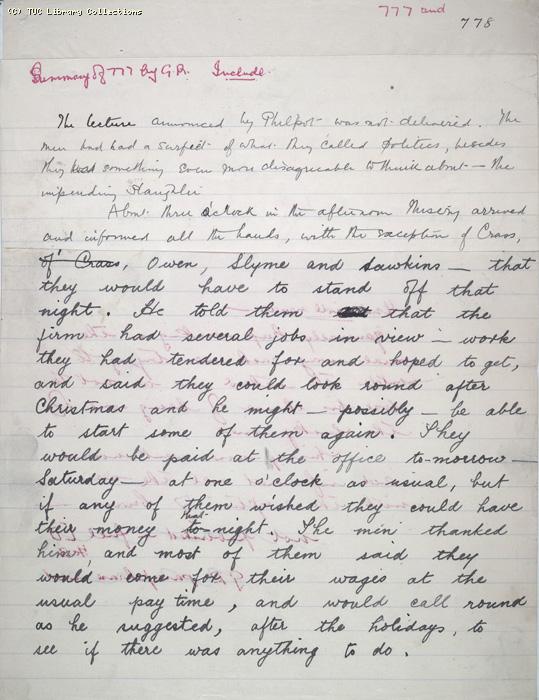 (C) TUC Library Collections
777 and
778
Summary of 777 by G.R. Include.
The lecture announced by Philpot was not delivered. The
men had had a surfeit of what they called politics, besides
they had something even more disagreeable to think about — the
impending slaughter
About three o'clock in the afternoon Misery arrived
and informed all the hands, with the exception of Crass,
of Crass, Owen, Slyme and Sawkins — that
they would have to stand off that
night. He told them that the
firm had several jobs in view — work
they had tendered for and hoped to get,
and said they could look round after
Christmas and he might — possibly — be able
to start some of them again. They
would be paid at the office to-morrow —
Saturday — at one o'clock as usual, but
if any of them wished they could have
their money that to-night. The men thanked
him, and most of them said they
would come for their wages at the
usual pay time, and would call round
as he suggested, after the holidays, to
see if there was anything to do.